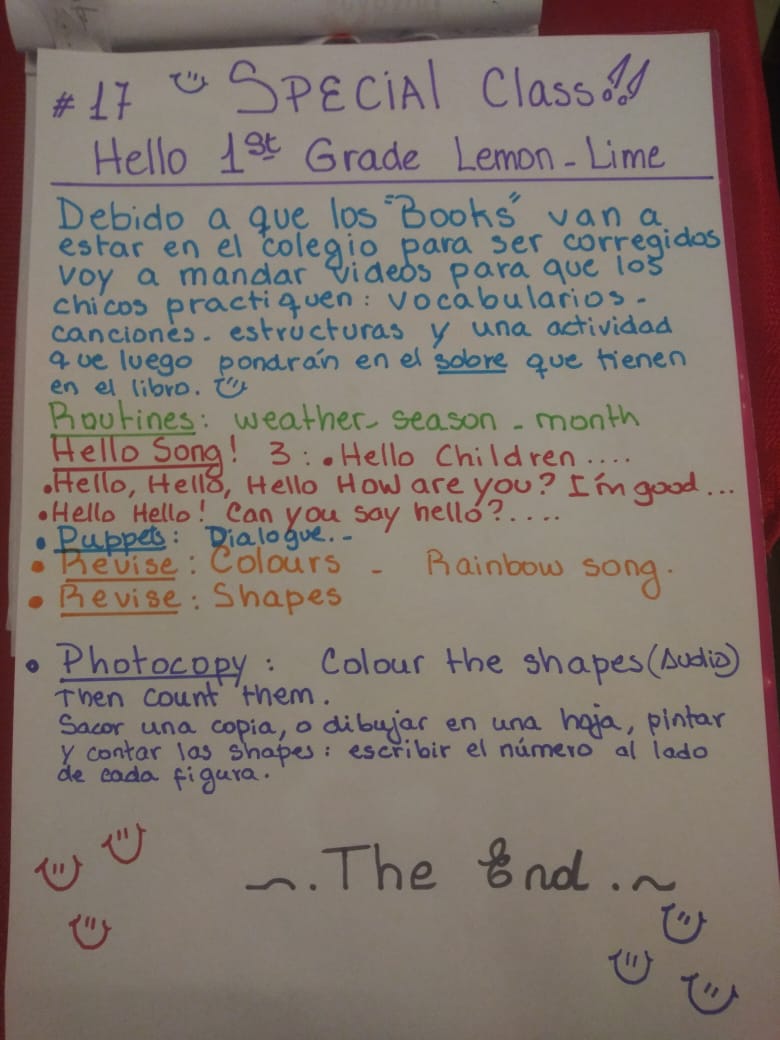 #17 SPECiAL Class!!
Hello 1st Grade Lemon-Lime
Debido a que los "Books" van a
estar en el colegio para ser corregidos
voy a mandar videos para que los
chicos practiquen: vocabularios-
canciones. estructuras y una actividad
que luego pondrán en el sobre que tienen
en el libro.
Routines: weather- season - month
Hello Song! 3: • Hello Children ....
• Hello, Hello, Hello How are you? I'm good...
• Hello Hello! Can you say hello?....
• Puppets: Dialogue.--
• Revise: Colours - Rainbow song.
• Revise: Shapes
• Photocopy: Colour the shapes (Audio)
Then count them.
Sacar una copia, o dibujar en una hoja, pintar
y contar las shapes: escribir el número al lado
de cada figura.
~.The End.~